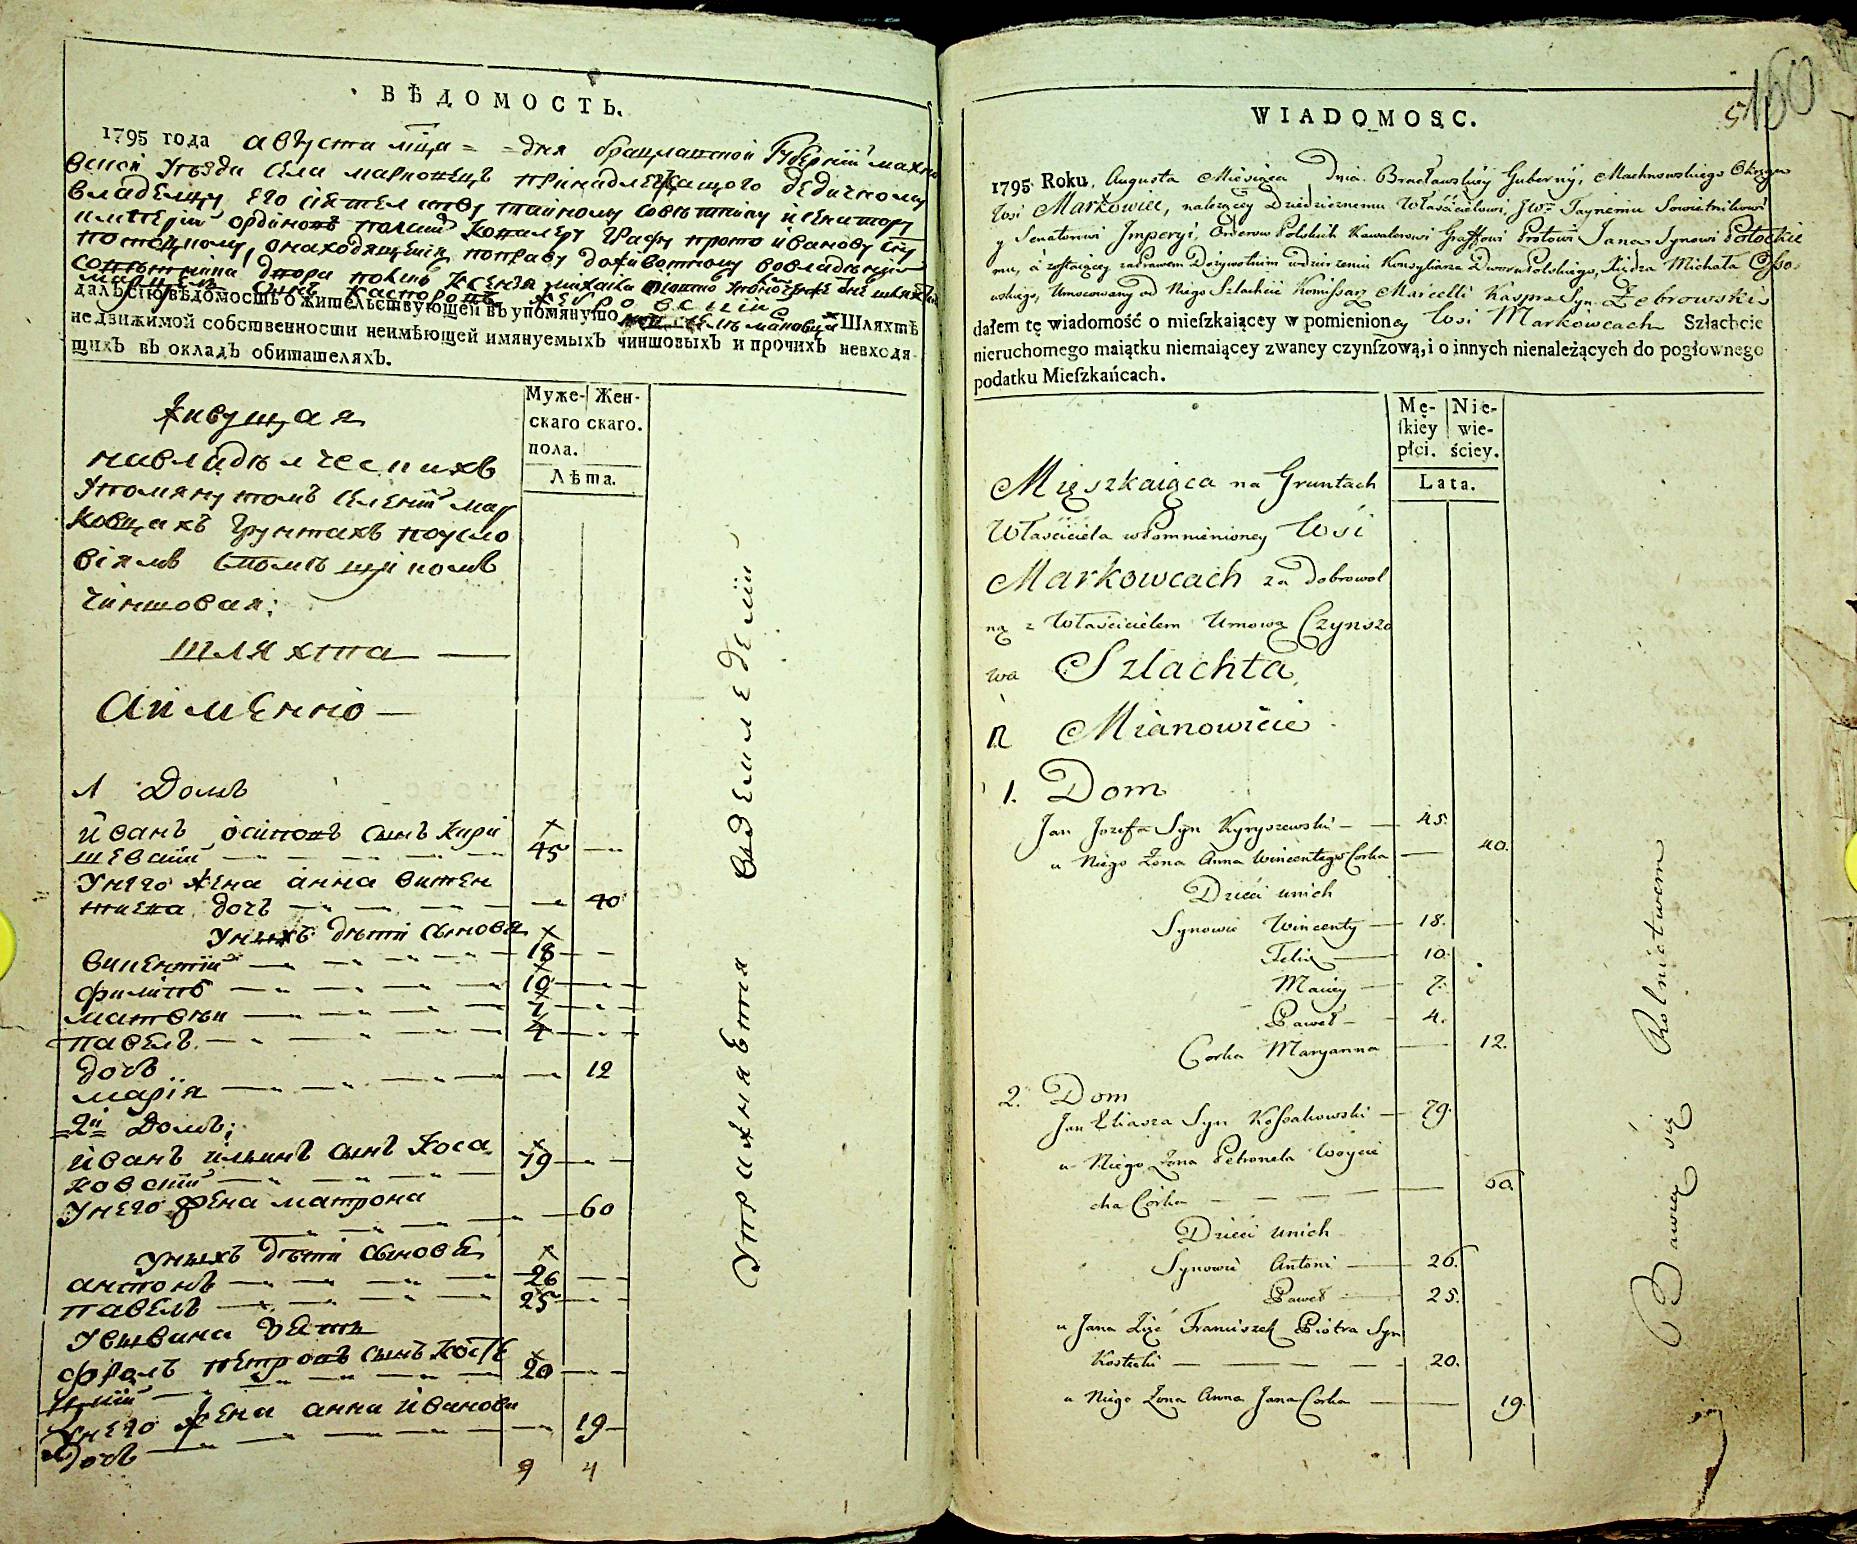 ВѢДОМОСТЬ.
1795 года августа мца = = дня брацлавской Губерніи махно
вской уѣзда села марковецъ принадлежащого дедичному
владелцу его сіятелству тайному совѣтнику и сенатору
имперіи ординовъ полскихъ кавалеру графу прото иванову сну
потоцкому, а находящейся по праву доживотному во владѣніи
двора ксендза михаила
сынъ
далъ сію вѣдомость о жительствующей въ упомянуто Шляхтѣ
недвижимой собственности неимѣющей имянуемыхъ чиншовыхъ и прочихъ невходя-
щихъ въ окладъ обитателяхъ.
Муже- Жен-
скаго скаго.
пола.
Лѣта.
Живущая
на владѣлческихъ
упомянутомъ селеніи мар
ковцахъ грунтахъ по усло
віямъ с помѣщикомъ
чиншовая:
шляхта
а именно
1 Домъ
иванъ осиповъ сынъ кири
шевский 45
у него жена анна викен
тиева дочь 40
у нихъ дѣти сынова
викентий 18
филипъ 10
матвѣи 7
павелъ 4
дочь
марія 12
2й Домъ;
иванъ ильинъ сынъ коса
ковский 79
у него жена матрона 60
у нихъ дѣти сыновя
антонъ 26
павелъ 25
у ивана зять
фролъ петровъ сынъ 20
у него жена анна иванова
дочь 19
9 4
Упражняется въ земледелии
160
WIADOMOSC.
1795 Roku, Augusta Miesiąca Dnia Bracławskiey Guberny, Machnowskiego Okręgu
Wsi Markowiec, należącey Dziedzicznemu Właścicielowi, JWu Taynemu Sowietnikowi
y Senatorowi Imperyi, Orderow Polskich Kawalerowi Graffowi Protowi Jana Synowi Potockie
mu, a zostaiącey za Prawem Dożywotnim w dzierżeniu Konsyliarza Dworu Polskiego, Xiędza Michała Osso-
wskiego, Umocowany od Niego Szlachcic Komissarz Marcelli Kaspra Syn Żebrowski
dałem tę wiadomość o mieſzkaiącey w pomienioney Wsi Markowcach Szlachcie
nieruchomego maiątku niemaiącey zwaney czynſzową, i o innych nienależących do pogłownego
podatku Mieſzkańcach.
Mę- Nie-
ſkiey wie-
płci. ściey.
Lata.
Mięszkaiąca na Gruntach
Właściciela wspomnioney Wsi
Markowcach za dobrowol
ną z Właścicielem Umową Czynszo
wa Szlachta,
a Mianowicie
1. Dom
Jan Jozefa Syn Kyryszewski 45.
u Niego Żona Anna Wincentego Corka 40.
Dzieci u nich
Synowie Wincenty 18.
Felix 10.
Maciey 7.
Paweł 4.
Corka Maryanna 12.
2. Dom
Jan Eliasza Syn Kossakowski 79.
u Niego Żona Petronela Woycie
cha Corka 60.
Dzieci u nich
Synowie Antoni 26.
Paweł 25.
u Jana Zięć Franciszek Piotra Syn
Kostecki 20.
u Niego Żona Anna Jana Corka 19.
Bawiący się Rolnictwem